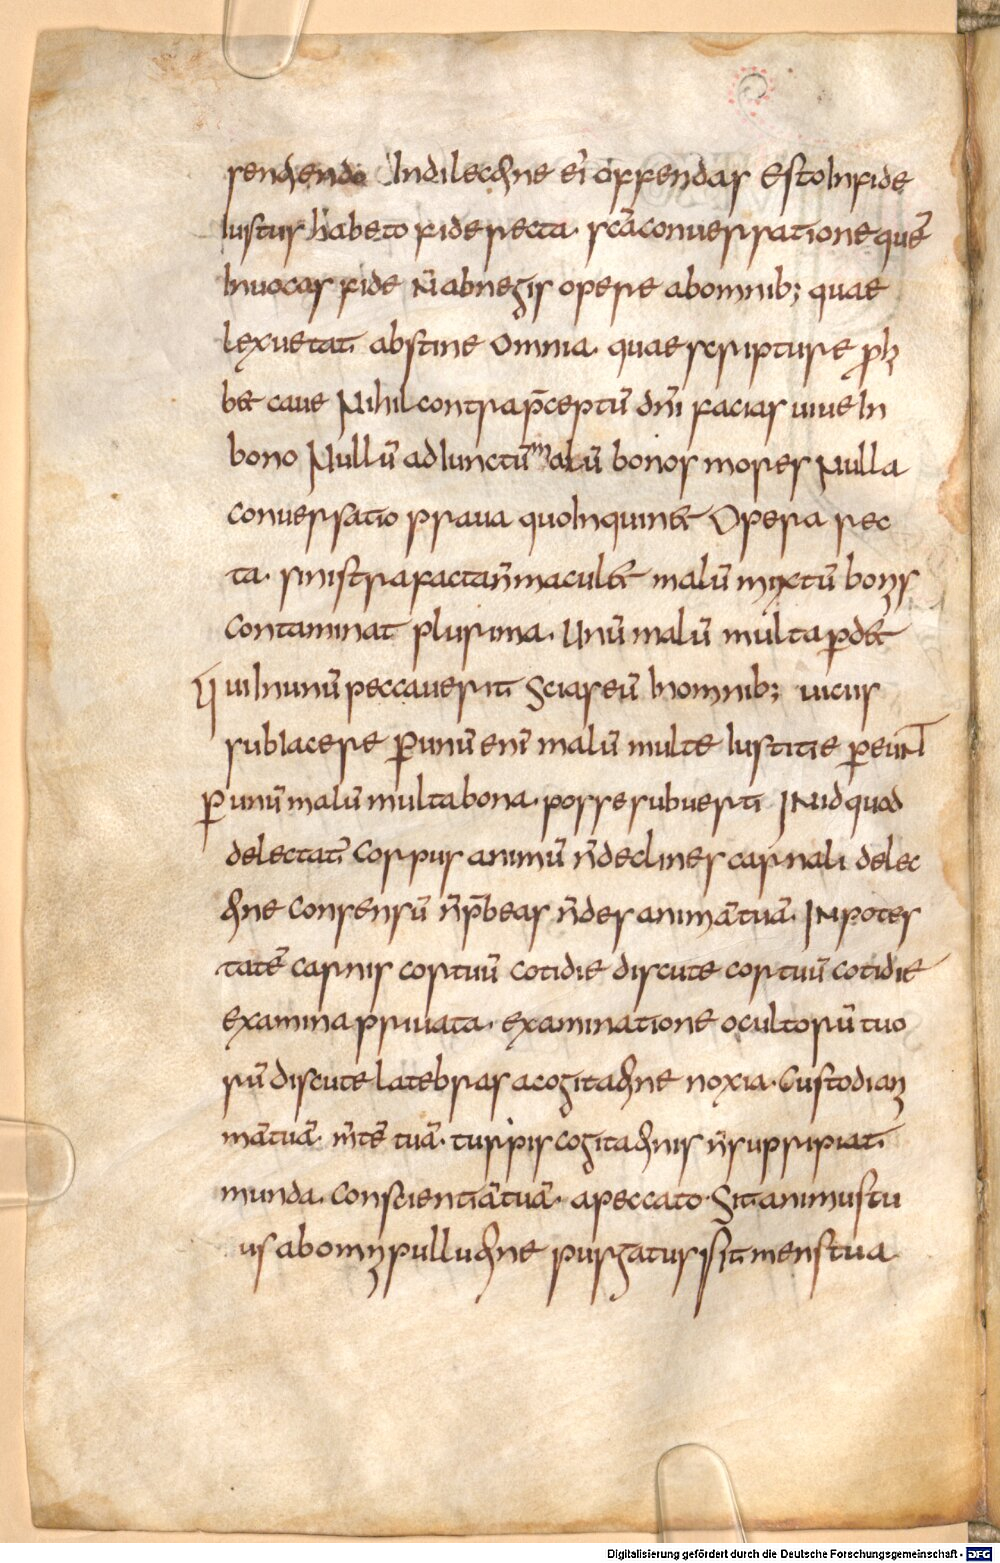 sentiendo Indilectione ei offendas Esto Infide
Iustus habeto fide recta. scāconuersatione quē
Inuocas fide N̄abnegis opere abomnib; quae
lexuetat abstine Omnia. quaescripture ꝓhi
bet caue Nihil contrap̄ceptū dn̄i facias uiue In
bono Nullū adIunctū malū bonos mores Nulla
conuersatio praua quoInquinet Opera rec
ta. sinistrafactan̄maculet malū mixtū bonis
contaminat plurima. Unū malū multa ꝑdet
Qui Inunū peccauerit Sciaseū Inomnib; uicus
subIacere ꝑunū enī malū multe Iustitie ꝑeunt
ꝑunū malū multabona. posse subuerti INid quod
delectat̄ Corpus animū n̄declines carnali delec
tione Consensū n̄p̄beas n̄des animātuā. INpotes
tatē carnis cortuū cotidie discute cortuū cotidie
examina priuata. examinatione ocultorū tuo
rū discute latebras acogitatione noxia. Custodiani
mātuā. m̄tē tuā. turpis cogitationis n̄surripiat
munda. Conscientiātuā. apeccato. Sit animustu
us abomni pullutione purgatus sit mens tua